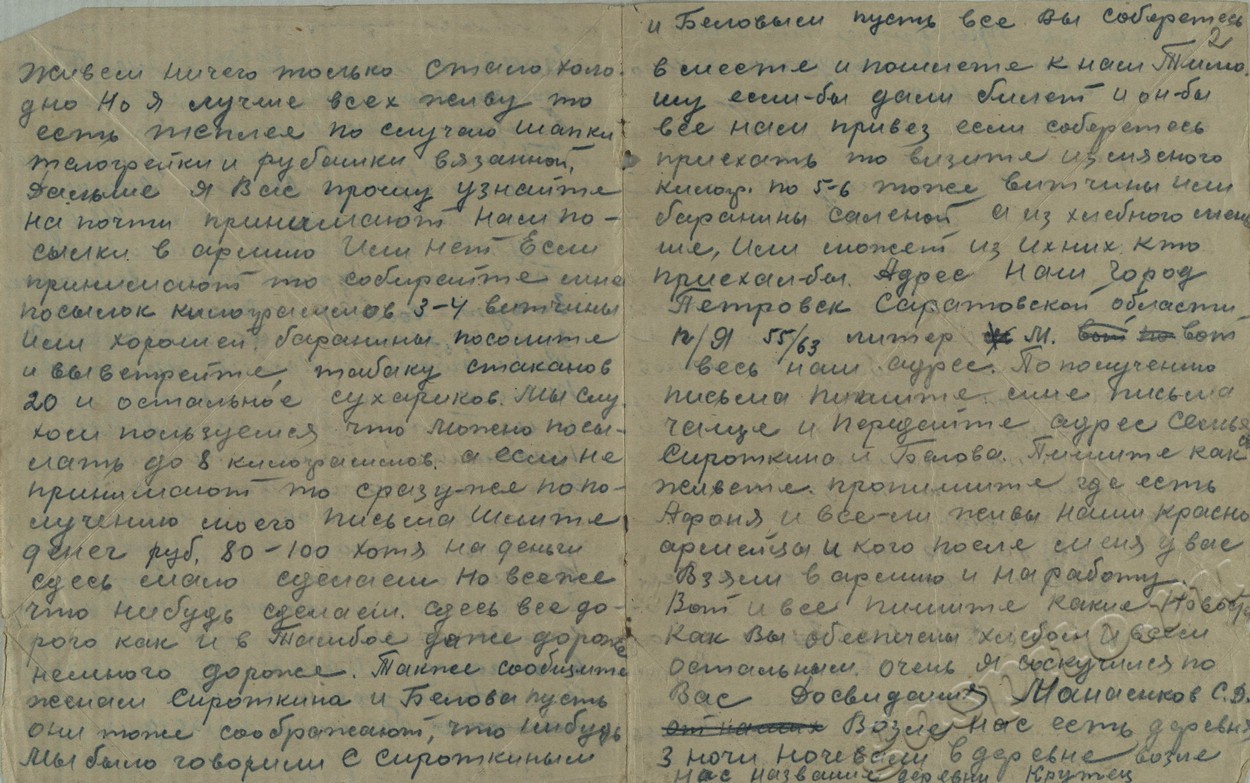 Живем ничего только стало холо-
дно Но я лучше всех живу то
есть теплее по случаю шапки
телогрейки и рубашки вязанной,
Дальше я Вас прошу узнайте
на почти принимают нам по-
сылки в армию Или нет Если
принимают то собирайте мне
посылок килограммов 3-4 витчины
Или хорошей баранины посолите
и вываетрейте, табаку стаканов
20 и остальное сухариков. Мы слу
хом пользуемся что можно посы-
лать до 8 килограммов. а если не
принимают то сразу-же по по-
лучению моего письма Шлите
денег руб. 80-100 хотя на деньги
сдесь мало сделаем но все же
что нибудь сделаем. сдесь все до-
рого как и в Тамбове даже дороже
немного дороже. Также сообщите
женам Сироткина и Белова пусть
они тоже соображают, что нибудь
Мы было говорили С Сироткиным
2
и Беловым пусть все Вы соберетесь
в месте и пошлете к нам Тимо
шу если-бы дали билет и он-бы
все нам привез если соберетесь
приехать то визите из мясного
килогр. по 5-6 тоже витчины Или
баранины саленой а из хлебного мень
ше, Или может из Ихних кто
приехал-бы. Адрес Наш Город
Петровск Саратовской области
п/Я 55/63 литер М. вот по вот
весь наш адрес. По получению
письма пишите мне письма
чаще и передайте адрес Семьям
Сироткина и Белова. Пишите как
живете. пропишите где есть
Афоня и все-ли живы наши красно
армейцы И кого после меня у вас
Взяли в армию и на работу.
Вот и все пишите какие Новости
Как Вы обеспечены хлебом и всем
остальным. очень Я соскучился по
Вас Досвидания Манаенков С.Д.
от наших Возле Нас есть деревня
3 ночи ночевали в деревне возле
Нас название деревни Кружец